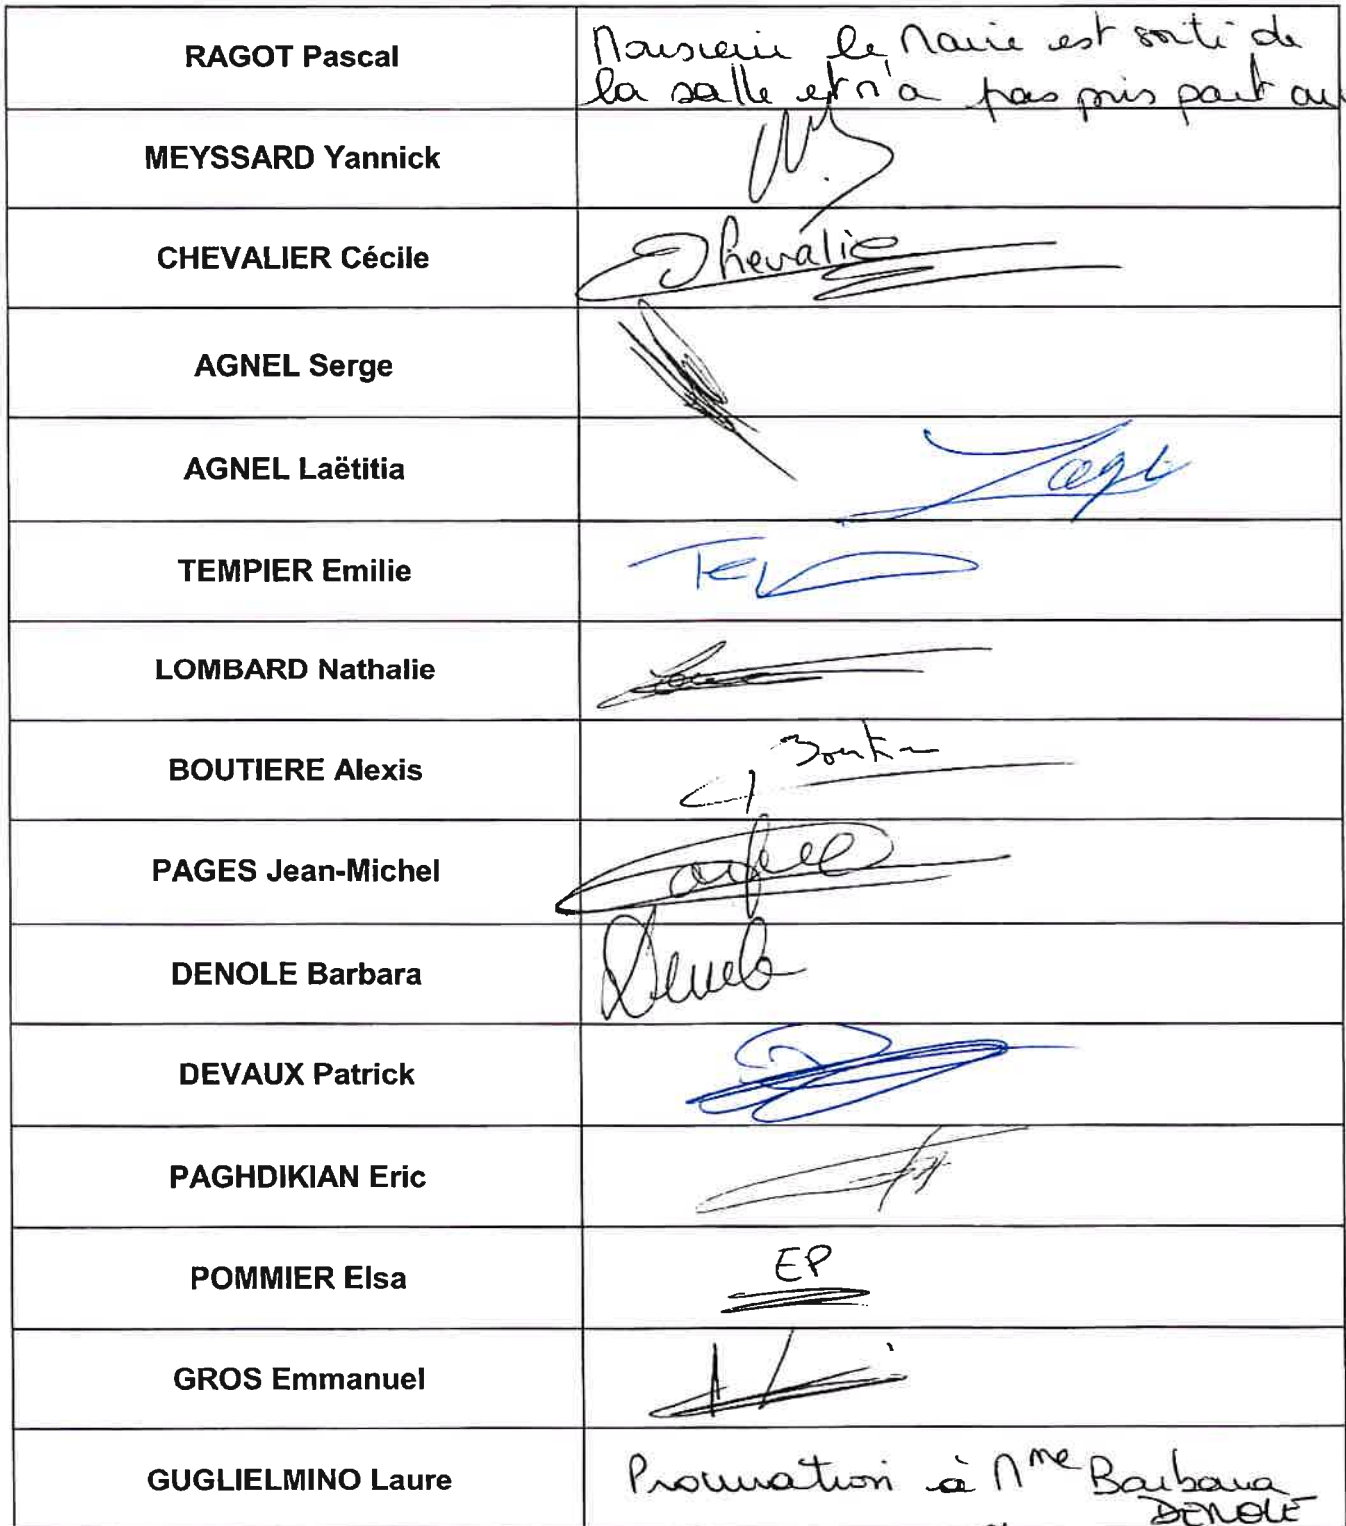 RAGOT Pascal
Monsieur le Maire est sorti de
la salle et n'a pas pris part au
MEYSSARD Yannick
CHEVALIER Cécile
Chevalie
AGNEL Serge
AGNEL Laëtitia
TEMPIER Emilie
LOMBARD Nathalie
BOUTIERE Alexis
PAGES Jean-Michel
DENOLE Barbara
DEVAUX Patrick
PAGHDIKIAN Eric
POMMIER Elsa
EP
GROS Emmanuel
GUGLIELMINO Laure
Procuration à Mme Barbara
DENOLE